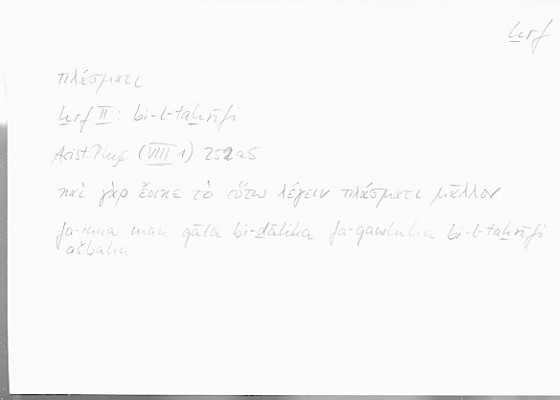 ḫrf
πλάσματι
ḫrf II: bi-l-taḫrīfi
Arist. Phys. (VIII 1) 252a5
καὶ γὰρ ἔοικε τὸ οὕτω λέγειν πλάσματι μᾶλλον
fa-inna man qāla bi-ḏālika fa-qawluhu bi-l-taḫrīfi
ašbahu